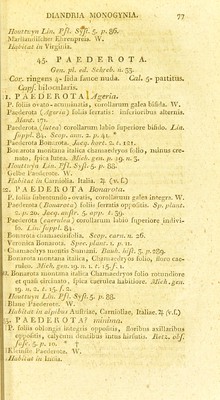 DIANDRIA MONOGYNIA. 77
Houttuyn Lin. Pfl. Syst. 5. p. 86.
Marilandischer Ehrenpreis. W.
Habitat in Virginia.
45. PAEDEROTA.
Gen. pl. ed. Schreb. n. 33.
Cor. ringens 4-fida fauce nuda. Cal. 5-partitus.
Caps. bilocularis.
1. PAEDEROTA Ageria.
P. foliis ovato-acuminatis, corollarum galea bifida. W.
Paederota (Ageria) foliis serratis: inferioribus alternis.
Mant. 171.
Paederota (lutea) corollarum labio superiore bifido. Lin.
suppl. 84. Scop. ann. 2. p. 42.
Paederota Bonarota. Jacq. hort. 2. t. 121.
Bonarota montana italica chamaedryos folio, minus crenato,
spica lutea. Mich. gen. p. 19. n. 3.
Houttuyn Lin. Pfl. Syst. 5. p. 88.
Gelbe Paederote. W.
Habitat in Carniolia, Italia. ♃ (v. f.)
2. PAEDEROTA Bonarota.
P. foliis subrotundo-ovatis, corollarum galea integra. W.
Paederota (Bonarota) foliis serratis oppositis. Sp. plant.
2. p. 20. Jacq. austr. 5. app. t. 39.
Paederota (caerulea) corollarum labio superiore indiviso.
Lin. suppl. 84.
Bonarota chamaedrifolia. Scop. carn. n. 26.
Veronica Bonarota. Spec. plant. 1. p. 11.
Chamaedrys montis Sumani. Bauh. hist. 3. p. 289.
Bonarota montana italica, Chamaedryos folio, flore caeruleo.
Mich. gen. 19. n. 1. t. 15. f. 1.
Bonarota montana italica Chamaedryos folio rotundiore
et quasi circinato, spica caerulea habitiore. Mich. gen.
19. n. 2. t. 15. f. 2.
Houttuyn Lin. Pfl. Syst. 5. p. 88.
Blaue Paederote. W.
Habitat in alpibus Austriae, Carnioliae, Italiae. ♃ (v. f.)
3. PAEDEROTA? minima.
P. foliis oblongis integris oppositis, floribus axillaribus
oppositis, calycum dentibus intus hirsutis. Retz. obs.
fasc. 5. p. 10. *
Kleinste Paederote. W.
Habitat in India.